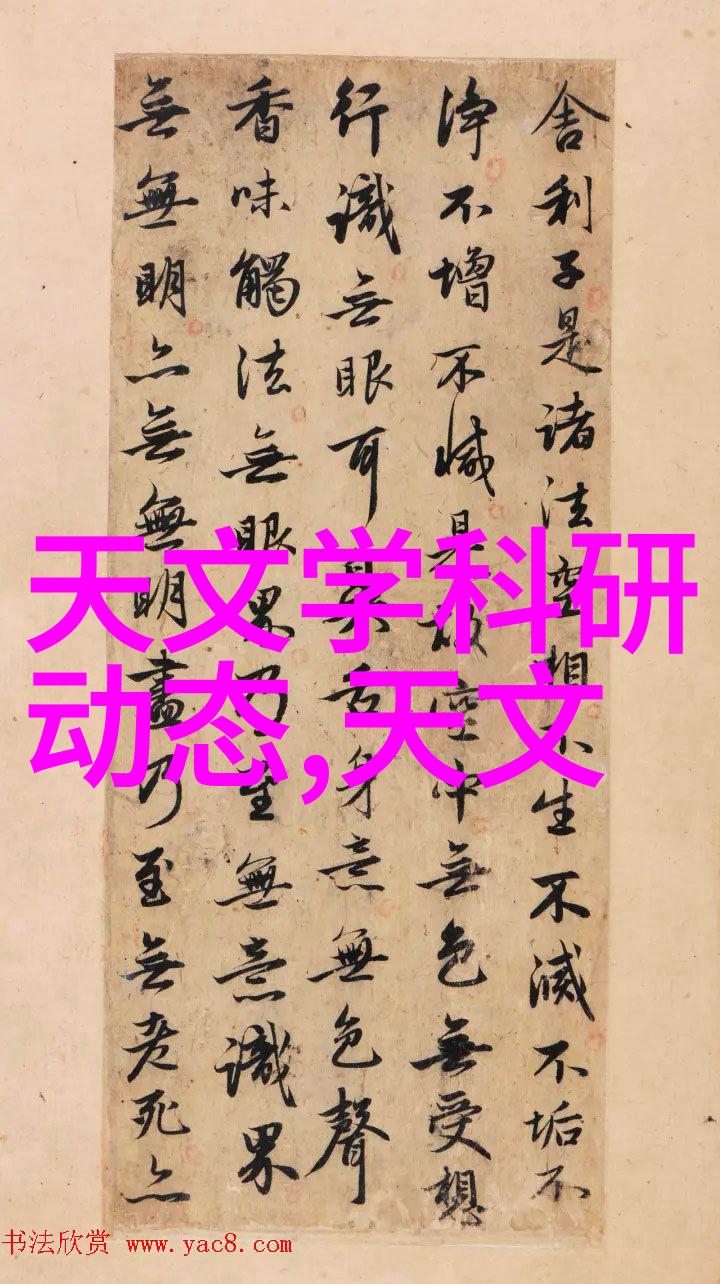 舍利子是諸法空相不生不滅不垢不
淨不增不減是故空中無色無受想
行識無眼耳鼻舌身意無色聲
香味觸法無眼界乃至無意識界
無無明亦無無明盡乃至無老死亦
天文学科研
动态,天文
书法欣赏 www.yac8.com